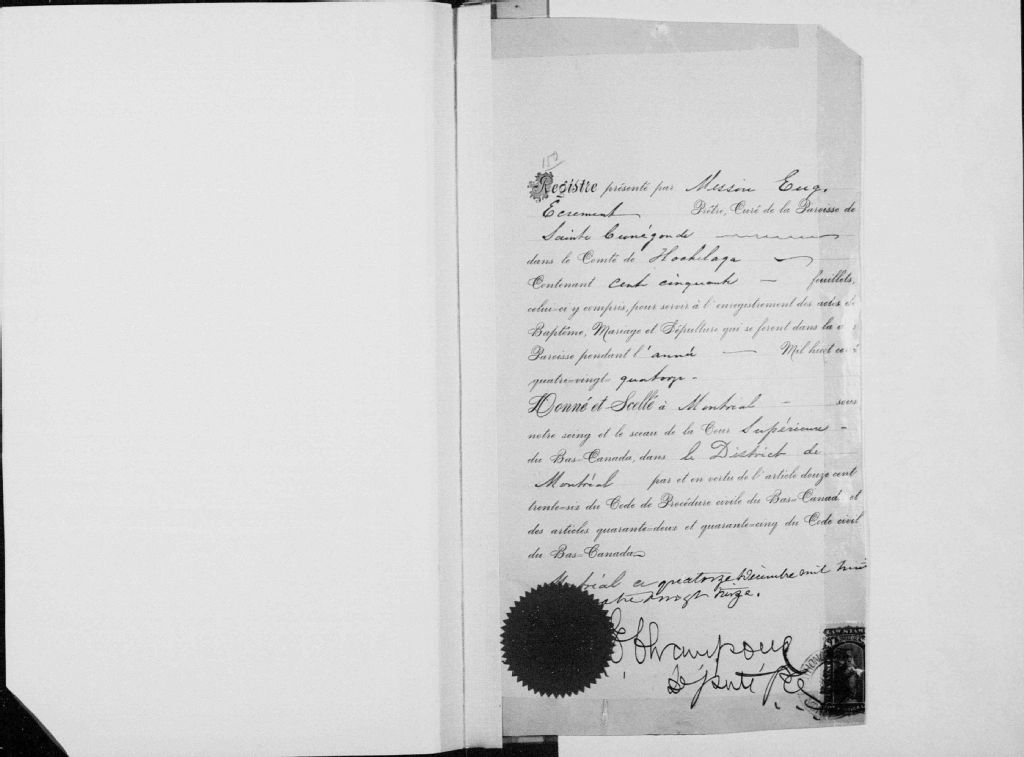 150
Registre présenté par Messire Eug.
Ecrement Prêtre, Curé de la Paroisse de
Sainte Cunégonde
dans le Comté de Hochelaga
Contenant cent cinquante feuillets,
celui-ci y compris, pour servir à l'enregistrement des actes de
Baptême, Mariage et Sépulture qui se feront dans la
Paroisse pendant l'année Mil huit cent
quatre-vingt quatorze-
Donné et Scellé à Montréal sous
notre seing et le sceau de la Cour Supérieure -
du Bas-Canada, dans le District de
Montréal par et en vertu de l'article douze cent
trente-six du Code de Procédure civile du Bas-Canada et
des articles quarante-deux et quarante-cinq du Code civil
du Bas-Canada
Montréal ce quatorze Décembre mil huit
quatre vingt treize.
Champoux
Député